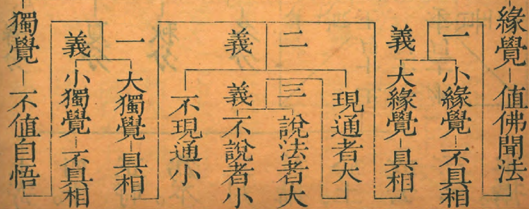 緣覺 值佛聞法
一義
小緣覺 不具相
大緣覺 具相
二義
現通者大
不現通小
三義
說法者大
不說者小
一義
大獨覺 具相
小獨覺 不具相
獨覺 不值自悟